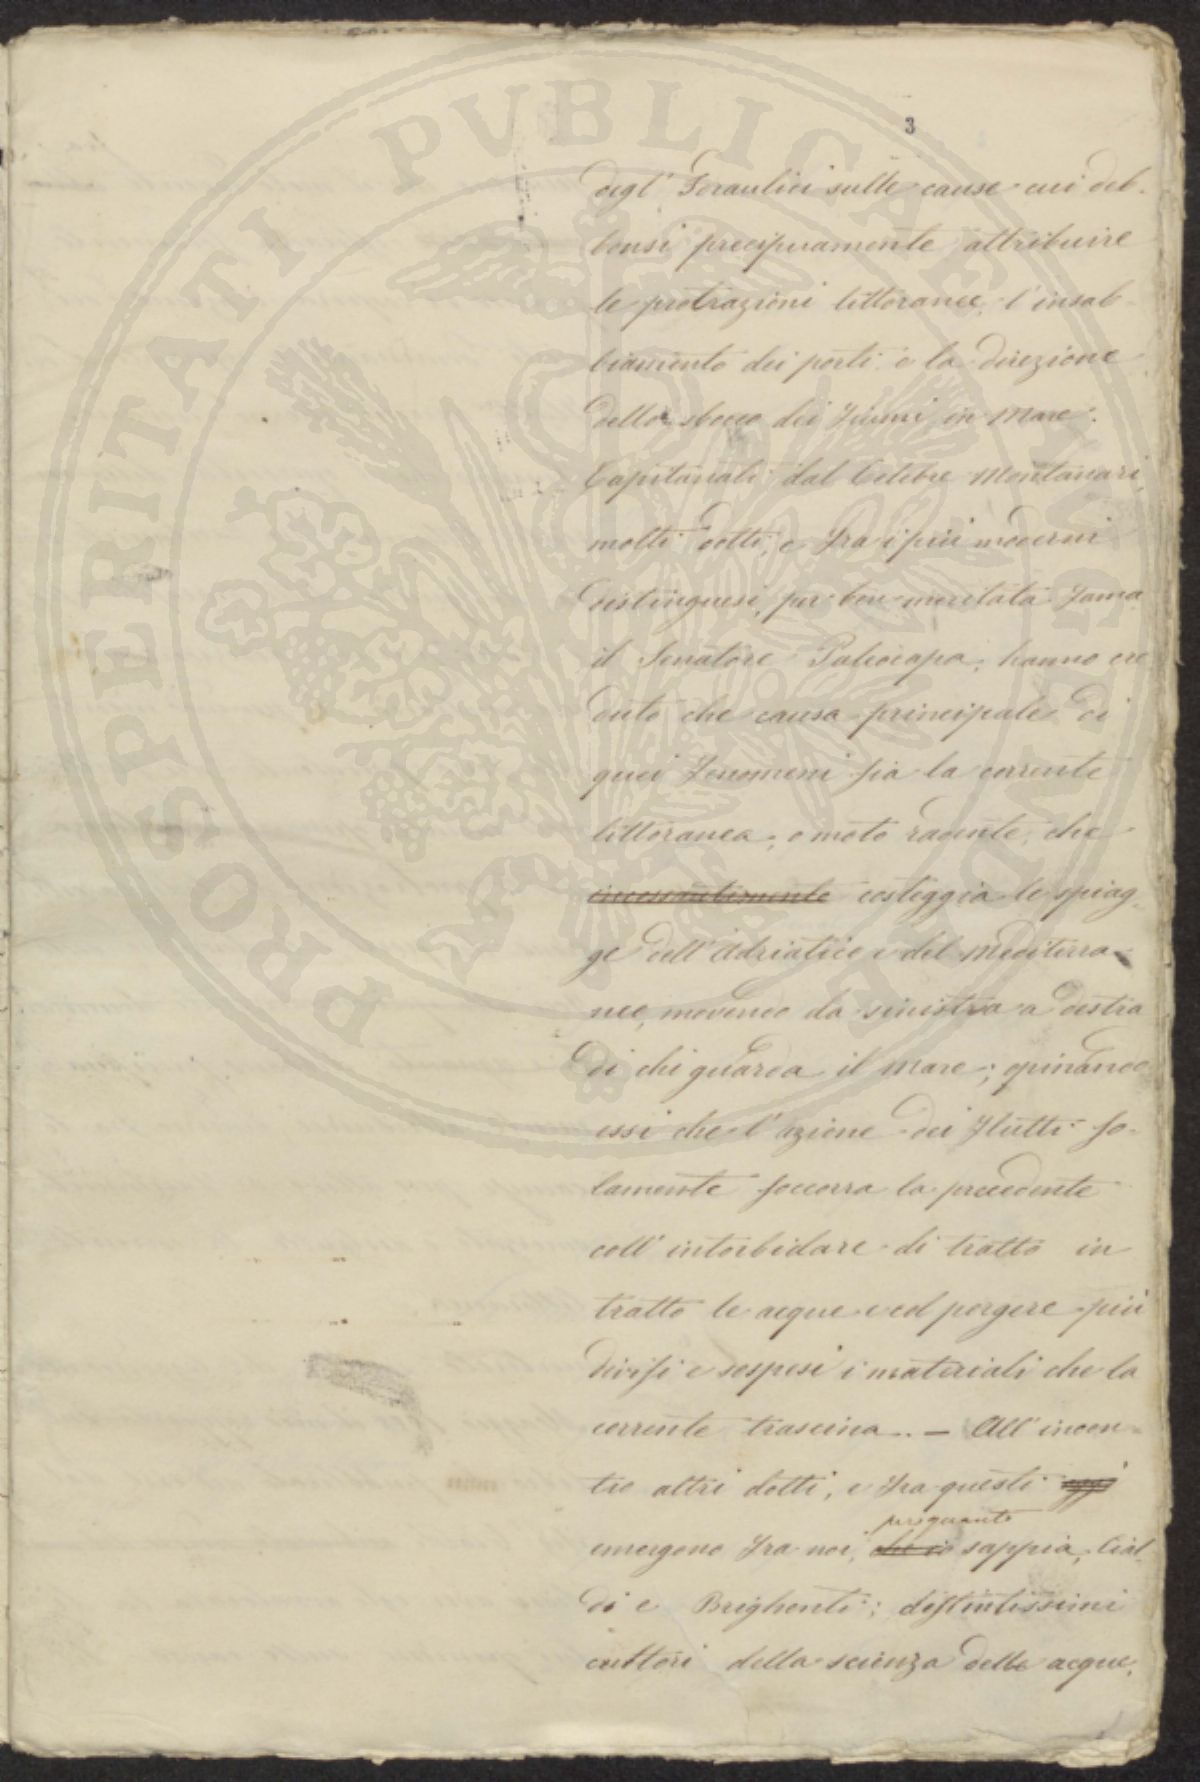 3
degl' Idraulici sulle cause cui deb-
bonsi precipuamente attribuire
le protrazioni littoranee, l'insab-
biamento dei porti e la direzione
dello sbocco dei fiumi in Mare.
Capitanati dal Celebre Montanari,
molti dotti, e fra i più moderni
distinguesi, per ben meritata fama
il Senatore Paleocapa, hanno cre
duto che causa principale di
quei fenomeni sia la corrente
littoranea, o moto radente, che
incessantemente costeggia le spiag-
ge dell'Adriatico e del Mediterra-
neo, movendo da sinistra a destra
di chi guarda il Mare; opinando
essi che l'azione dei flutti so-
lamente soccorra la precedente
coll'intorbidare di tratto in
tratto le acque ed porgere più
divisi e sospesi i materiali che la
corrente trascina. — All'incon-
tro altri dotti, e fra questi oggi
per quanto
emergono fra noi, che io sappia, Cial-
di e Brighenti; distintissimi
cultori della scienza delle acque,
PROSPERITATI PVBLICAE AVGENDAE